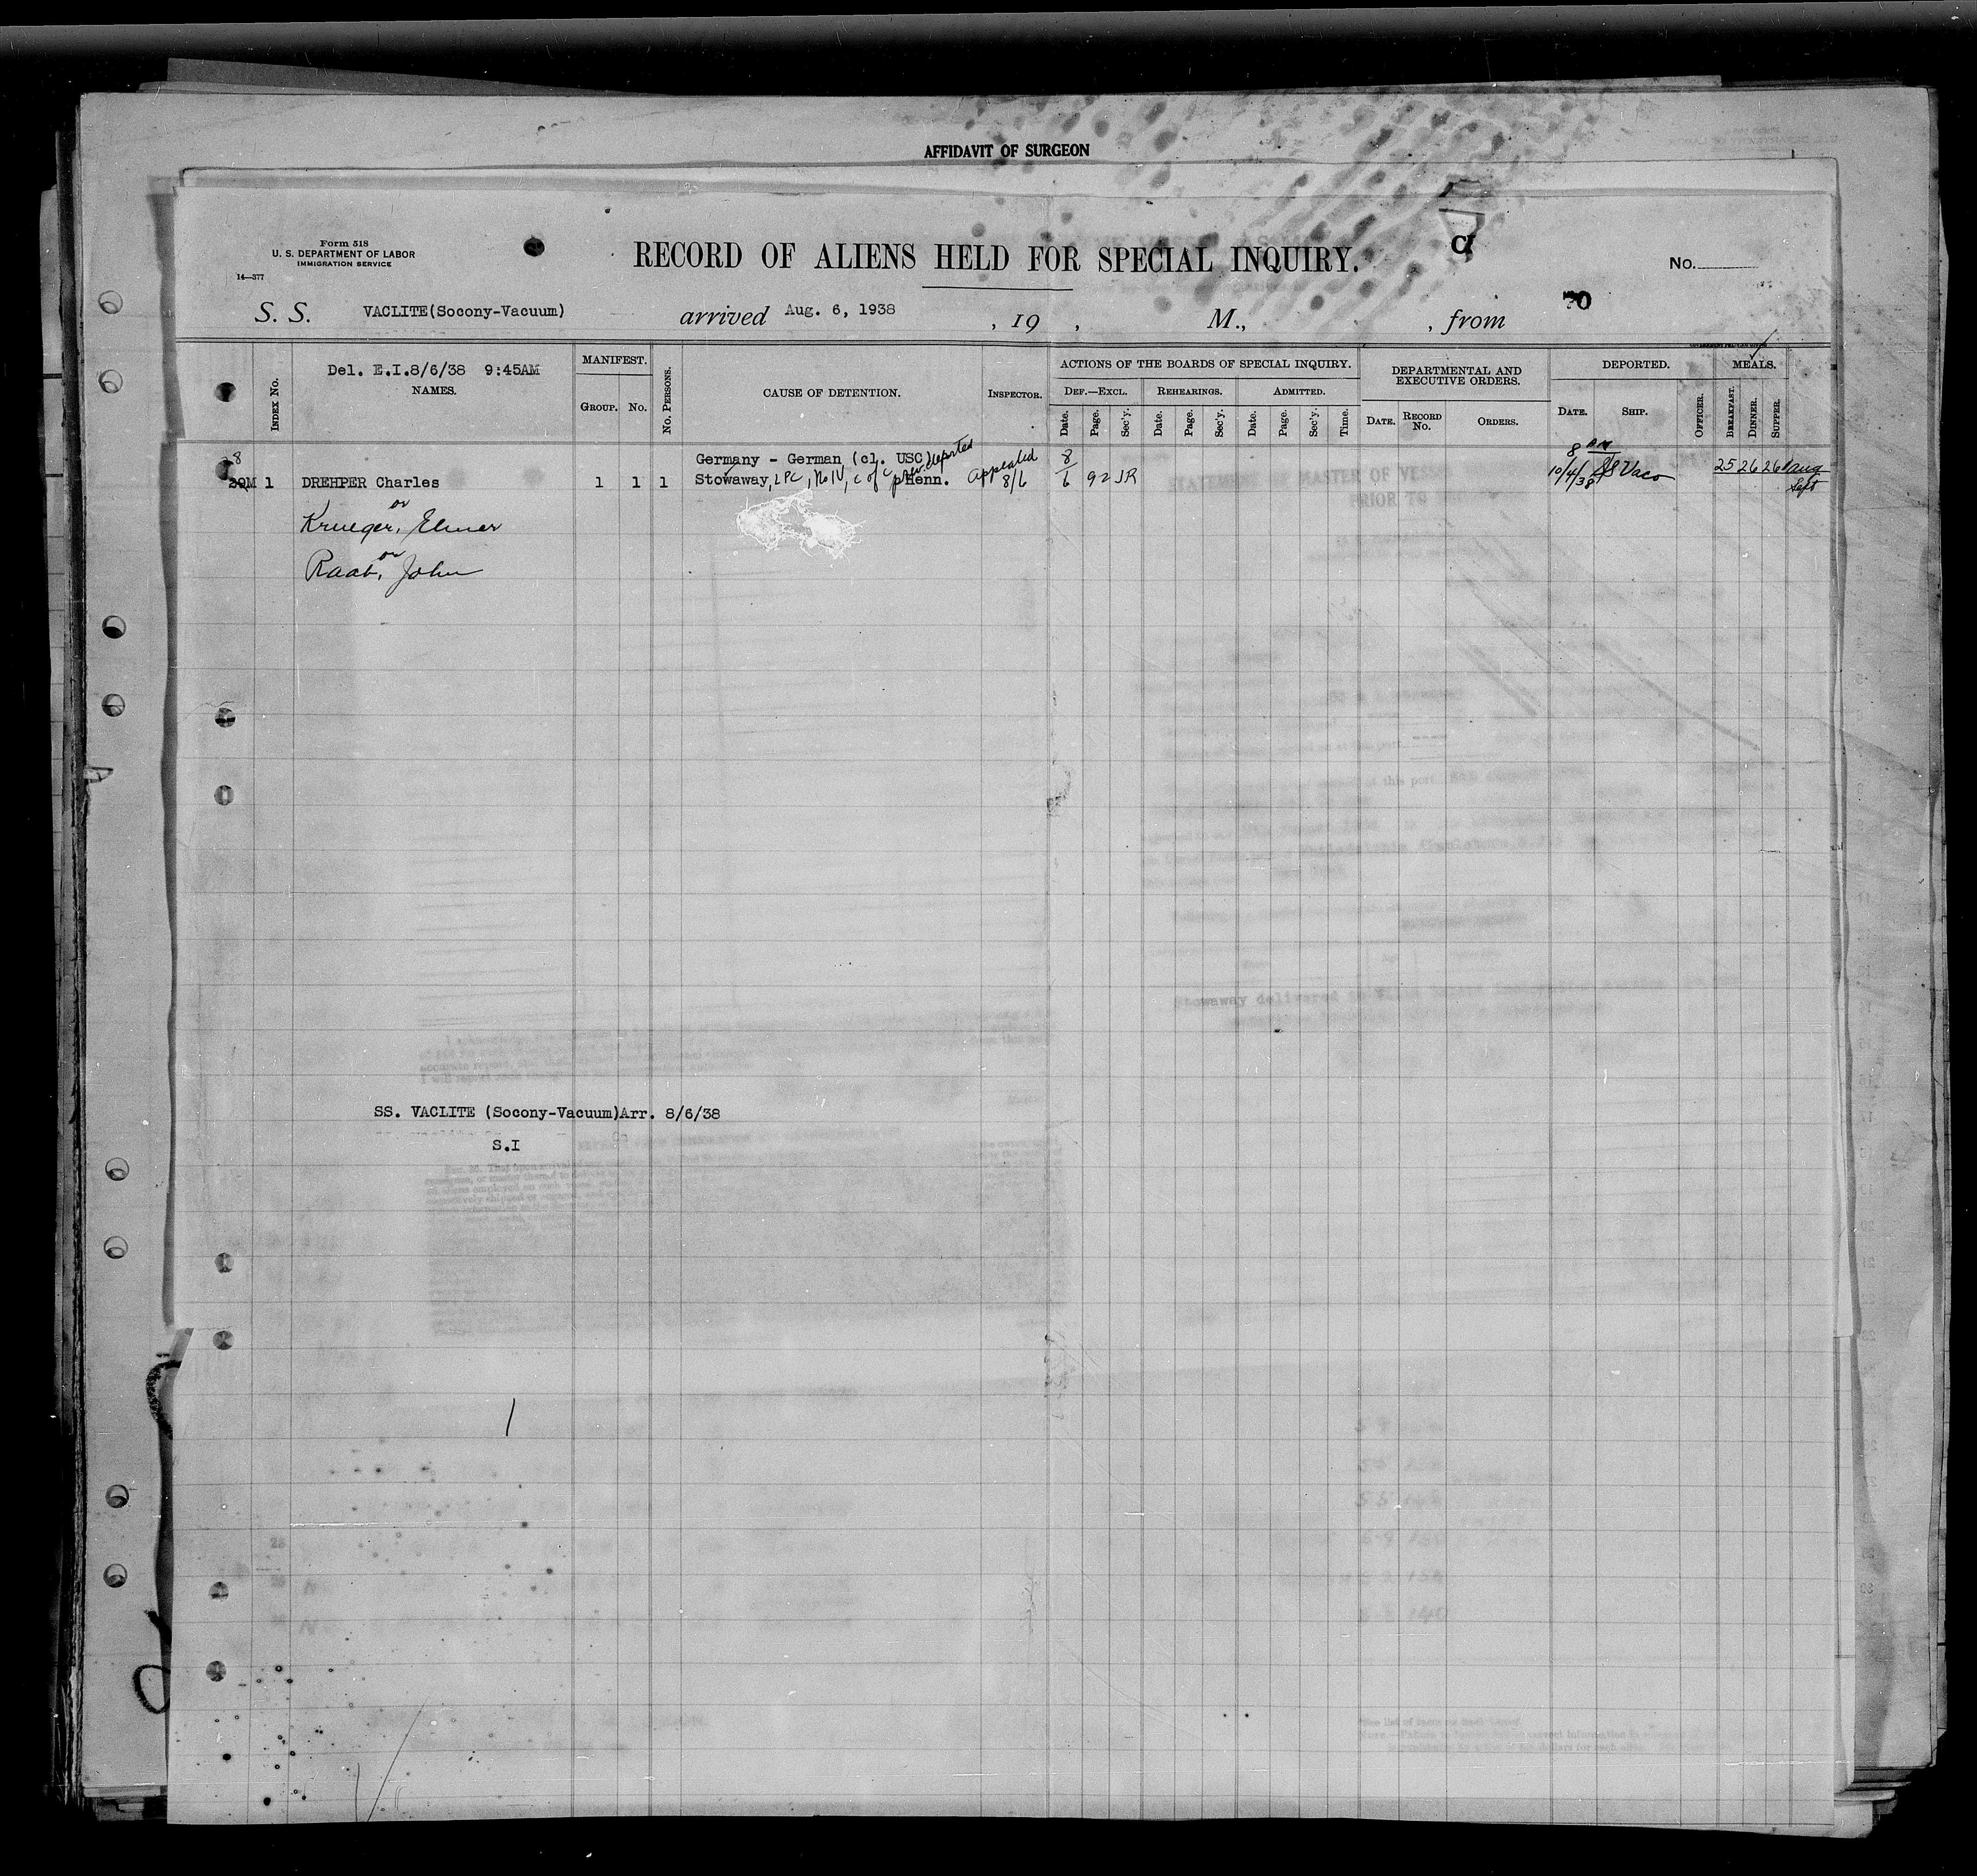 AFFIDAVIT OF SURGEON
Form 518
U. S. DEPARTMENT OF LABOR
IMMIGRATION SERVICE
14—377
RECORD OF ALIENS HELD FOR SPECIAL INQUIRY.
No.
S. S. VACLITE(Socony-Vacuum) arrived Aug. 6, 1938 , 19 , M., , from
70
Del. E.I.8/6/38 9:45AM
INDEX No.
NAMES.
MANIFEST.
GROUP. No.
No. PERSONS.
CAUSE OF DETENTION.
INSPECTOR.
ACTIONS OF THE BOARDS OF SPECIAL INQUIRY.
DEF.—EXCL. REHEARINGS. ADMITTED.
Date. Page. Sec'y. Date. Page. Sec'y. Date. Page. Sec'y. Time.
DEPARTMENTAL AND EXECUTIVE ORDERS.
DATE. RECORD No. ORDERS.
DEPORTED.
DATE. SHIP. OFFICER.
MEALS.
BREAKFAST. DINNER. SUPPER.
28 Germany - German (cl. USC) prev. deported 8 8 AM
29M 1 DREHPER Charles 1 1 1 Stowaway, LPC, No IV, C of C p/Henn. Appealed 8/6 6 92 JR 10/4/38 SS Vaco 25 26 26 Aug
Sept
or
Krueger, Elmer
or
Raab, John
Stowaway delivered
SS. VACLITE (Socony-Vacuum)Arr. 8/6/38
S.I